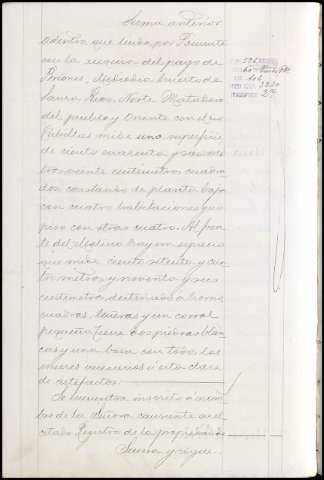 Suma anterior
dentro que linda por Poniente
con la acequia del pago de
Briones, Mediodia huerto de
Laura Rico, Norte Matadero
del pueblo y Oriente con el rio
mide una superficie
de ciento cuarenta y seis me
tros veinte centimetros cuadra
dos constando de planta baja
con cuatro habitaciones y un
piso con otras cuatro. Al fren
te del hay un espacio
que mide ciento setenta y cua
tro metros y noventa y seis
centimetros destinado a horno
cuadras, leñeras y un corral
pequeño tiene dos piedras blan
cas y una base con todos los
enseres necesarios a esta clase
de artefactos.
Se encuentra inscrito a nom
bre de la Señora causante en el
citado Registro de la propiedad
Suma y sigue.